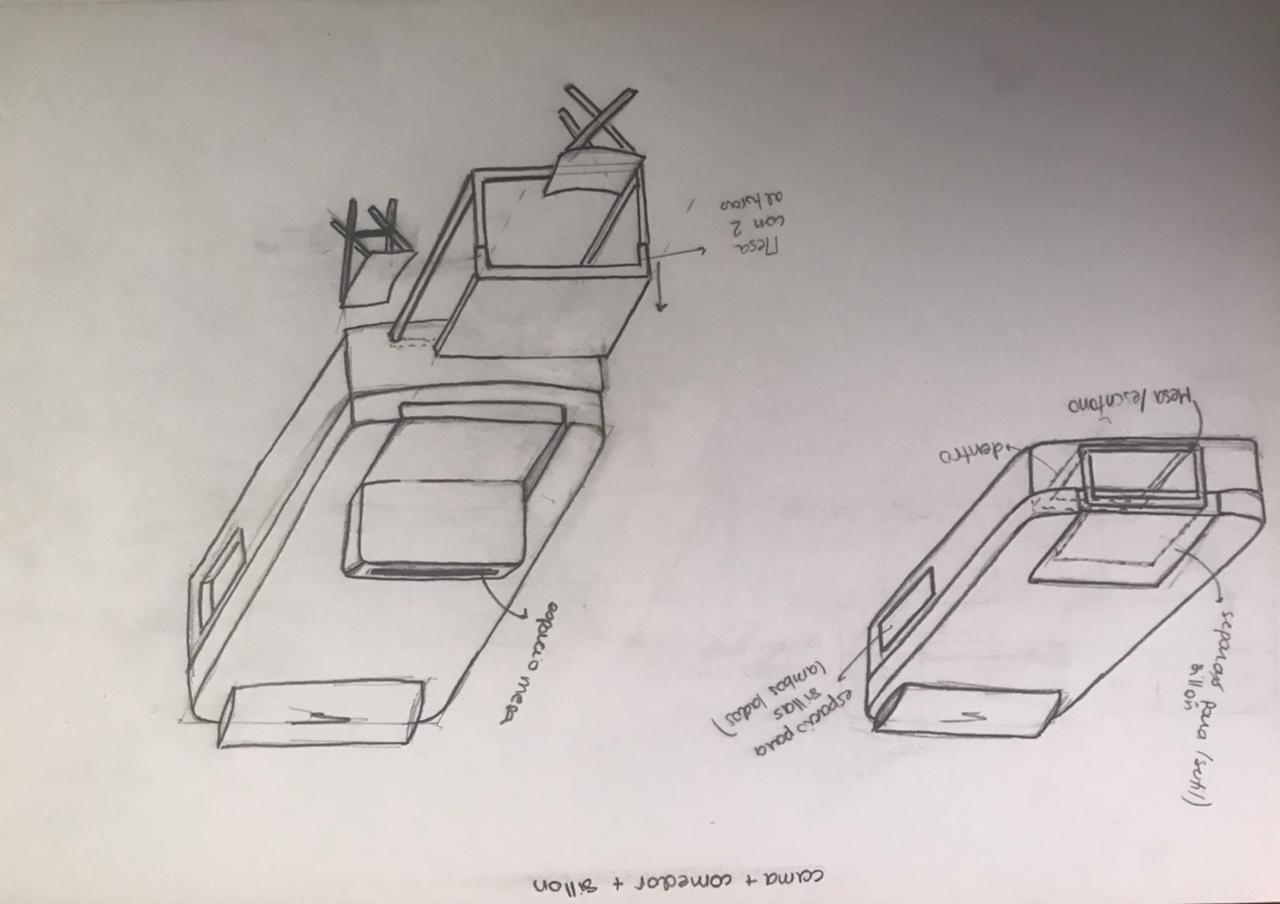 cama + comedor + sillon
separador para (sutil)
sillón
espacio para
sillas
(ambos lados)
dentro
Mesa/escritorio
espacio mesa
Mesa
con 2
alturas